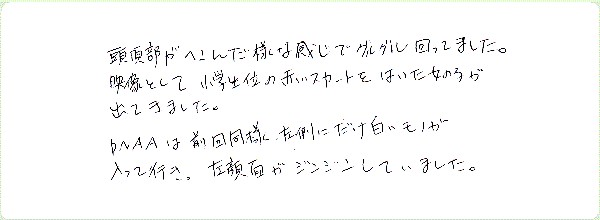 頭頂部がへこんだ様な感じでグルグル回ってました。
映像として小学生位の赤いスカートをはいた女の子が
出てきました。
DNAAは前回同様、左側にだけ白いモノが
入って行き、左顔面がジンジンしていました。